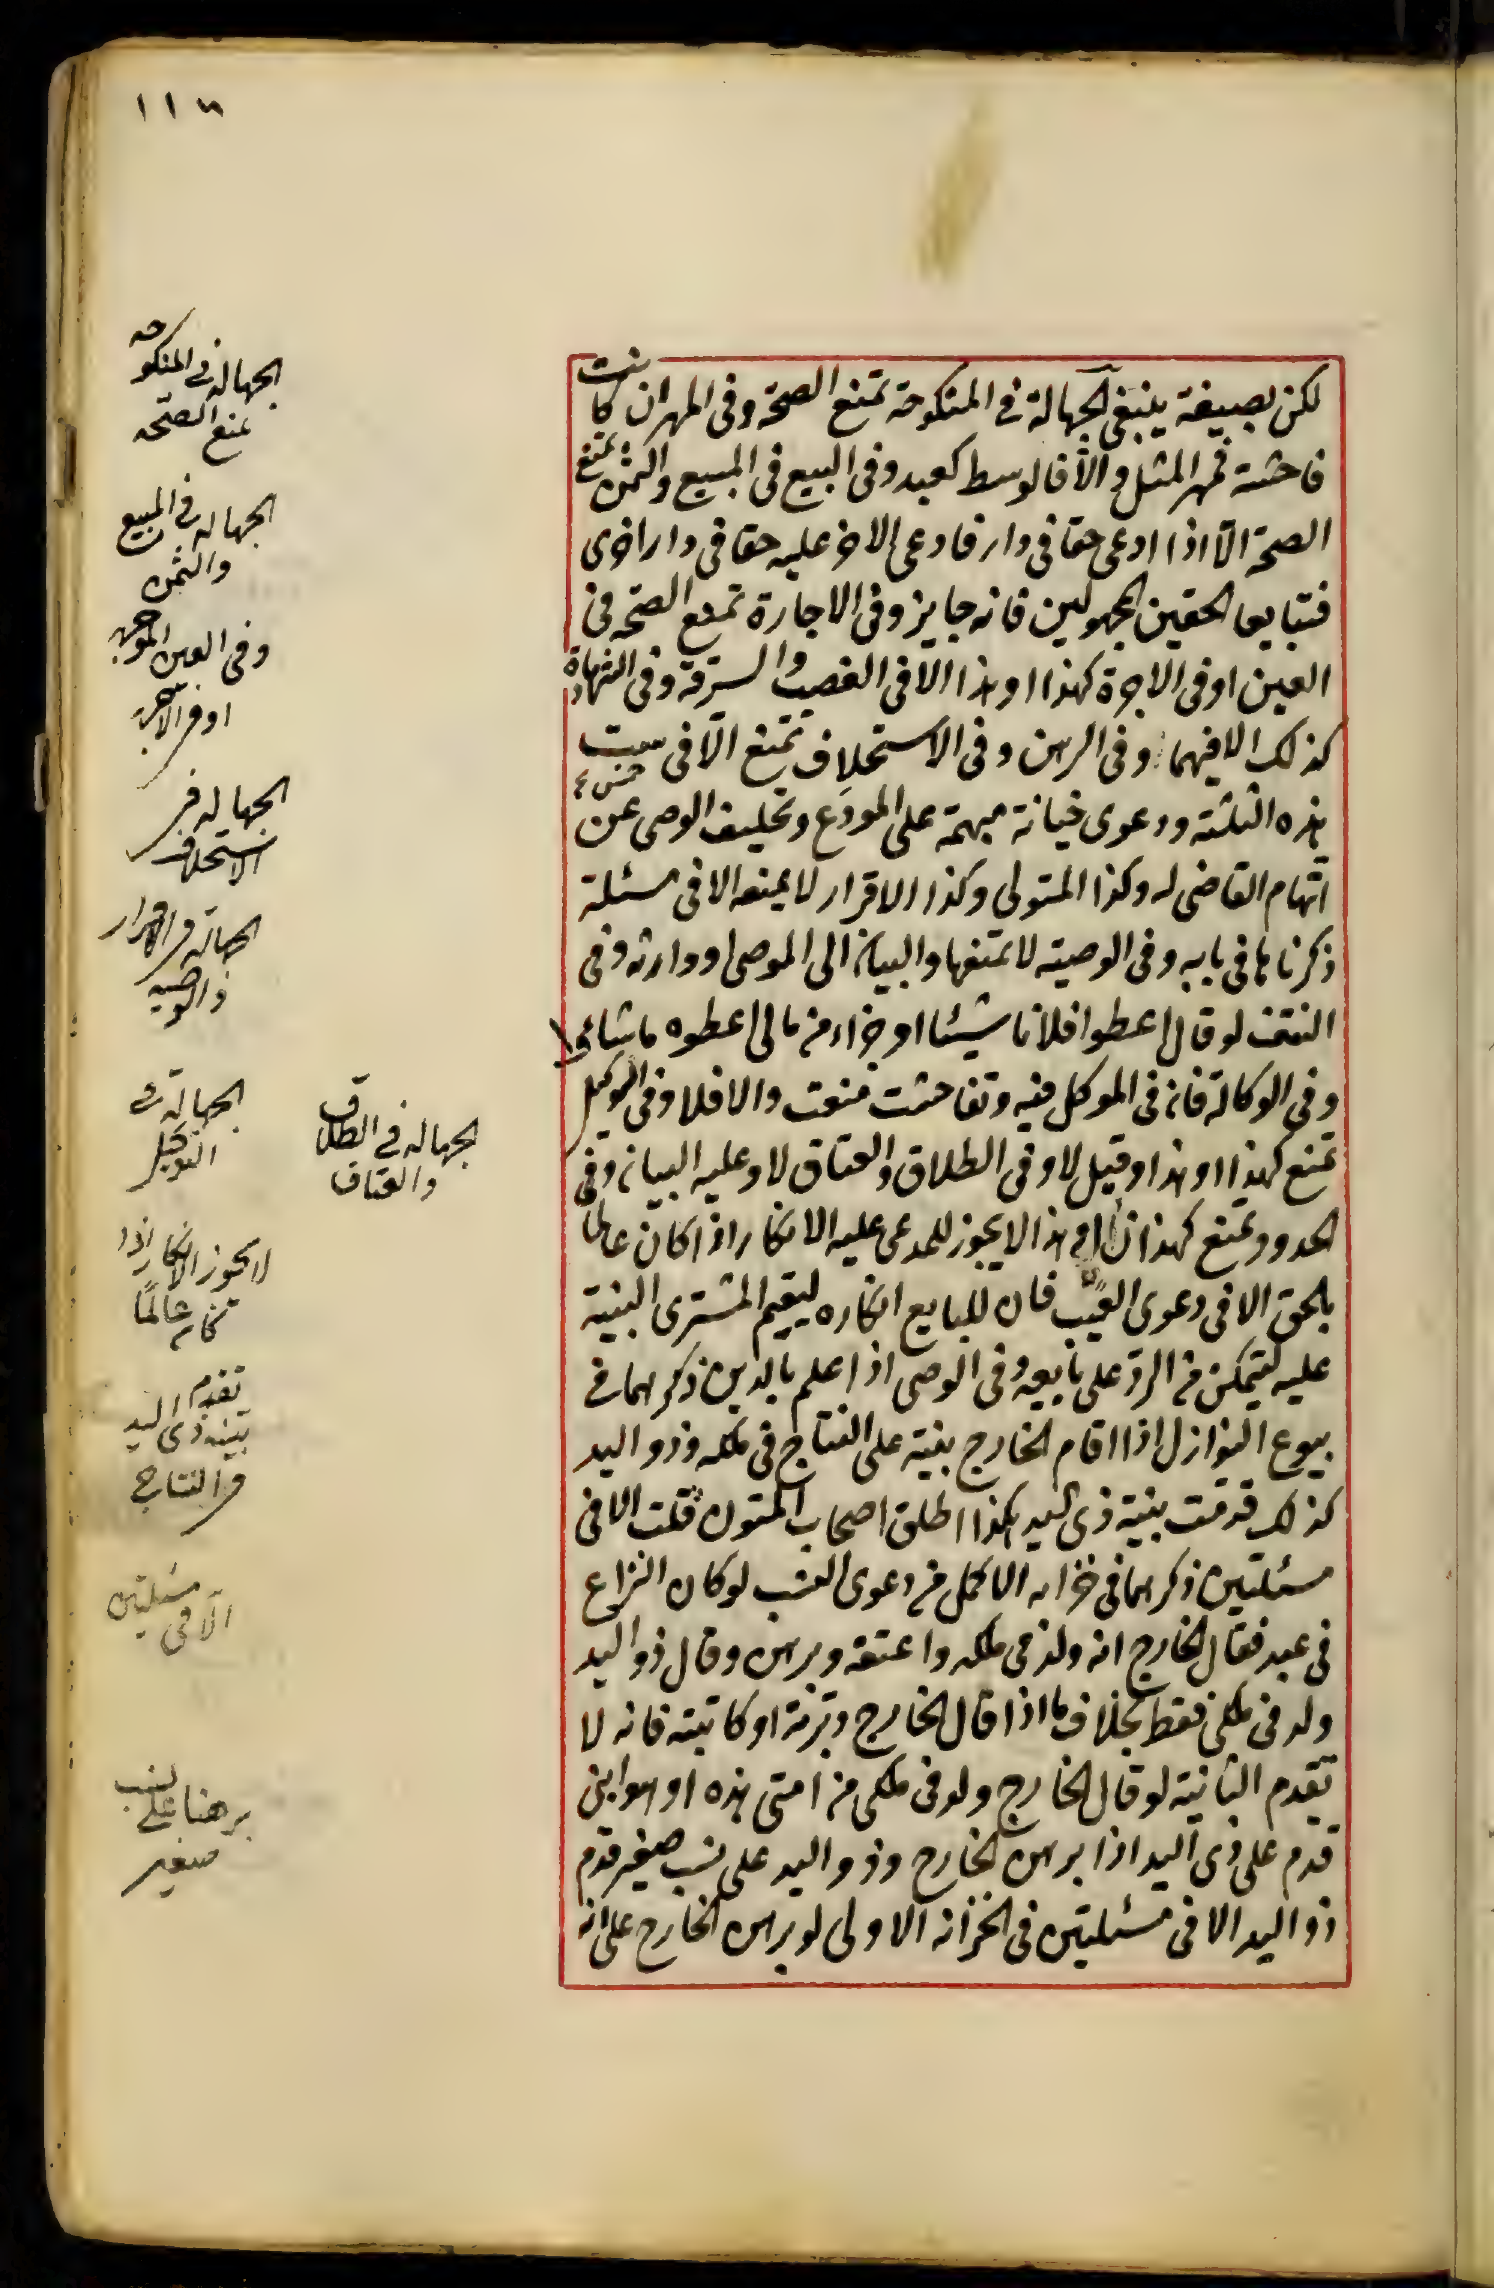 ١١٦
لكن بصيغة ينبغي الجهالة في المنكوحة تمنع الصحة وفى المهر ان كانت
فاحشة فمهر المثل والّا فالوسط كعبد وفى البيع فى المبيع والثمن تمنع
الصحة الّا اذا ادعى حقا فى دار فادعى الاخر عليه حقا فى دار اخرى
فتبايعا الحقين المجهولين فانه جايز وفى الاجارة تمنع الصحة فى
العين او فى الاجرة كهذا او هذا الا فى الغصب والسرقة وفى الشهادة
كذلك الا فيهما وفى الرهن وفى الاستحلاف تمنع الّا فى ست
هذه الثلثة ودعوى خيانة مبهمة على المودع وتحليف الوصى عن
اتهام القاضى له وكذا المتولى وكذا الاقرار لا يمنعه الا فى مسئلة
ذكرناها فى بابه وفى الوصية لا تمنعها والبيان الى الموصى او وارثه وفى
النتف لو قال اعطوا فلانا شيئا او جزاء من مالى اعطوه ما شاؤا
وفى الوكالة فان فى الموكل فيه وتفاحشت منعت والا فلا وفى الوكيل
تمنع كهذا او هذا وقيل لا وفى الطلاق والعتاق لا وعليه البيان وفى
الحدود تمنع كهذا زان او هذا لا يجوز للمدعى عليه الانكار اذا كان عالما
بالحق الا فى دعوى العيب فان للبايع انكاره ليقيم المشترى البينة
عليه ليتمكن من الرد على بايعه وفى الوصى اذا علم بالدين ذكرهما فى
بيوع النوازل اذا اقام الخارج بينة على النتاج فى ملكه وذو اليد
كذلك قدمت بينة ذى اليد هكذا اطلق اصحاب المتون قلت الا فى
مسئلتين ذكرهما فى خزانه الاكمل من دعوى النسب لو كان النزاع
فى عبد فقال الخارج انه ولد فى ملكه واعتقه وبرهن وقال ذو اليد
ولد فى ملكى فقط بخلاف ما اذا قال الخارج دبرته او كاتبته فانه لا
تقدم الثانية لو قال الخارج ولد فى ملكى من امتى هذه او هو ابنى
قدم على ذى اليد اذا برهن الخارج وذو اليد على نسب صغير قدم
ذو اليد الا فى مسئلتين فى الخزانه الاولى لو برهن الخارج على انه
الجهاله فى المنكوحه
تمنع الصحه
الجهاله فى المبيع
والثمن
وفى العين الموجره
او فى الاجره
الجهاله فى
الاستحلاف
الجهالة فى الاقرار
والوصيه
الجهالة فى
التوكيل
الجهاله فى الطلاق
والعتاق
لا يجوز الانكار اذا
كان عالمًا
تقدم
بينه ذى اليد
فى النتاج
الّا فى مسئلتين
برهنا على نسب
صغير